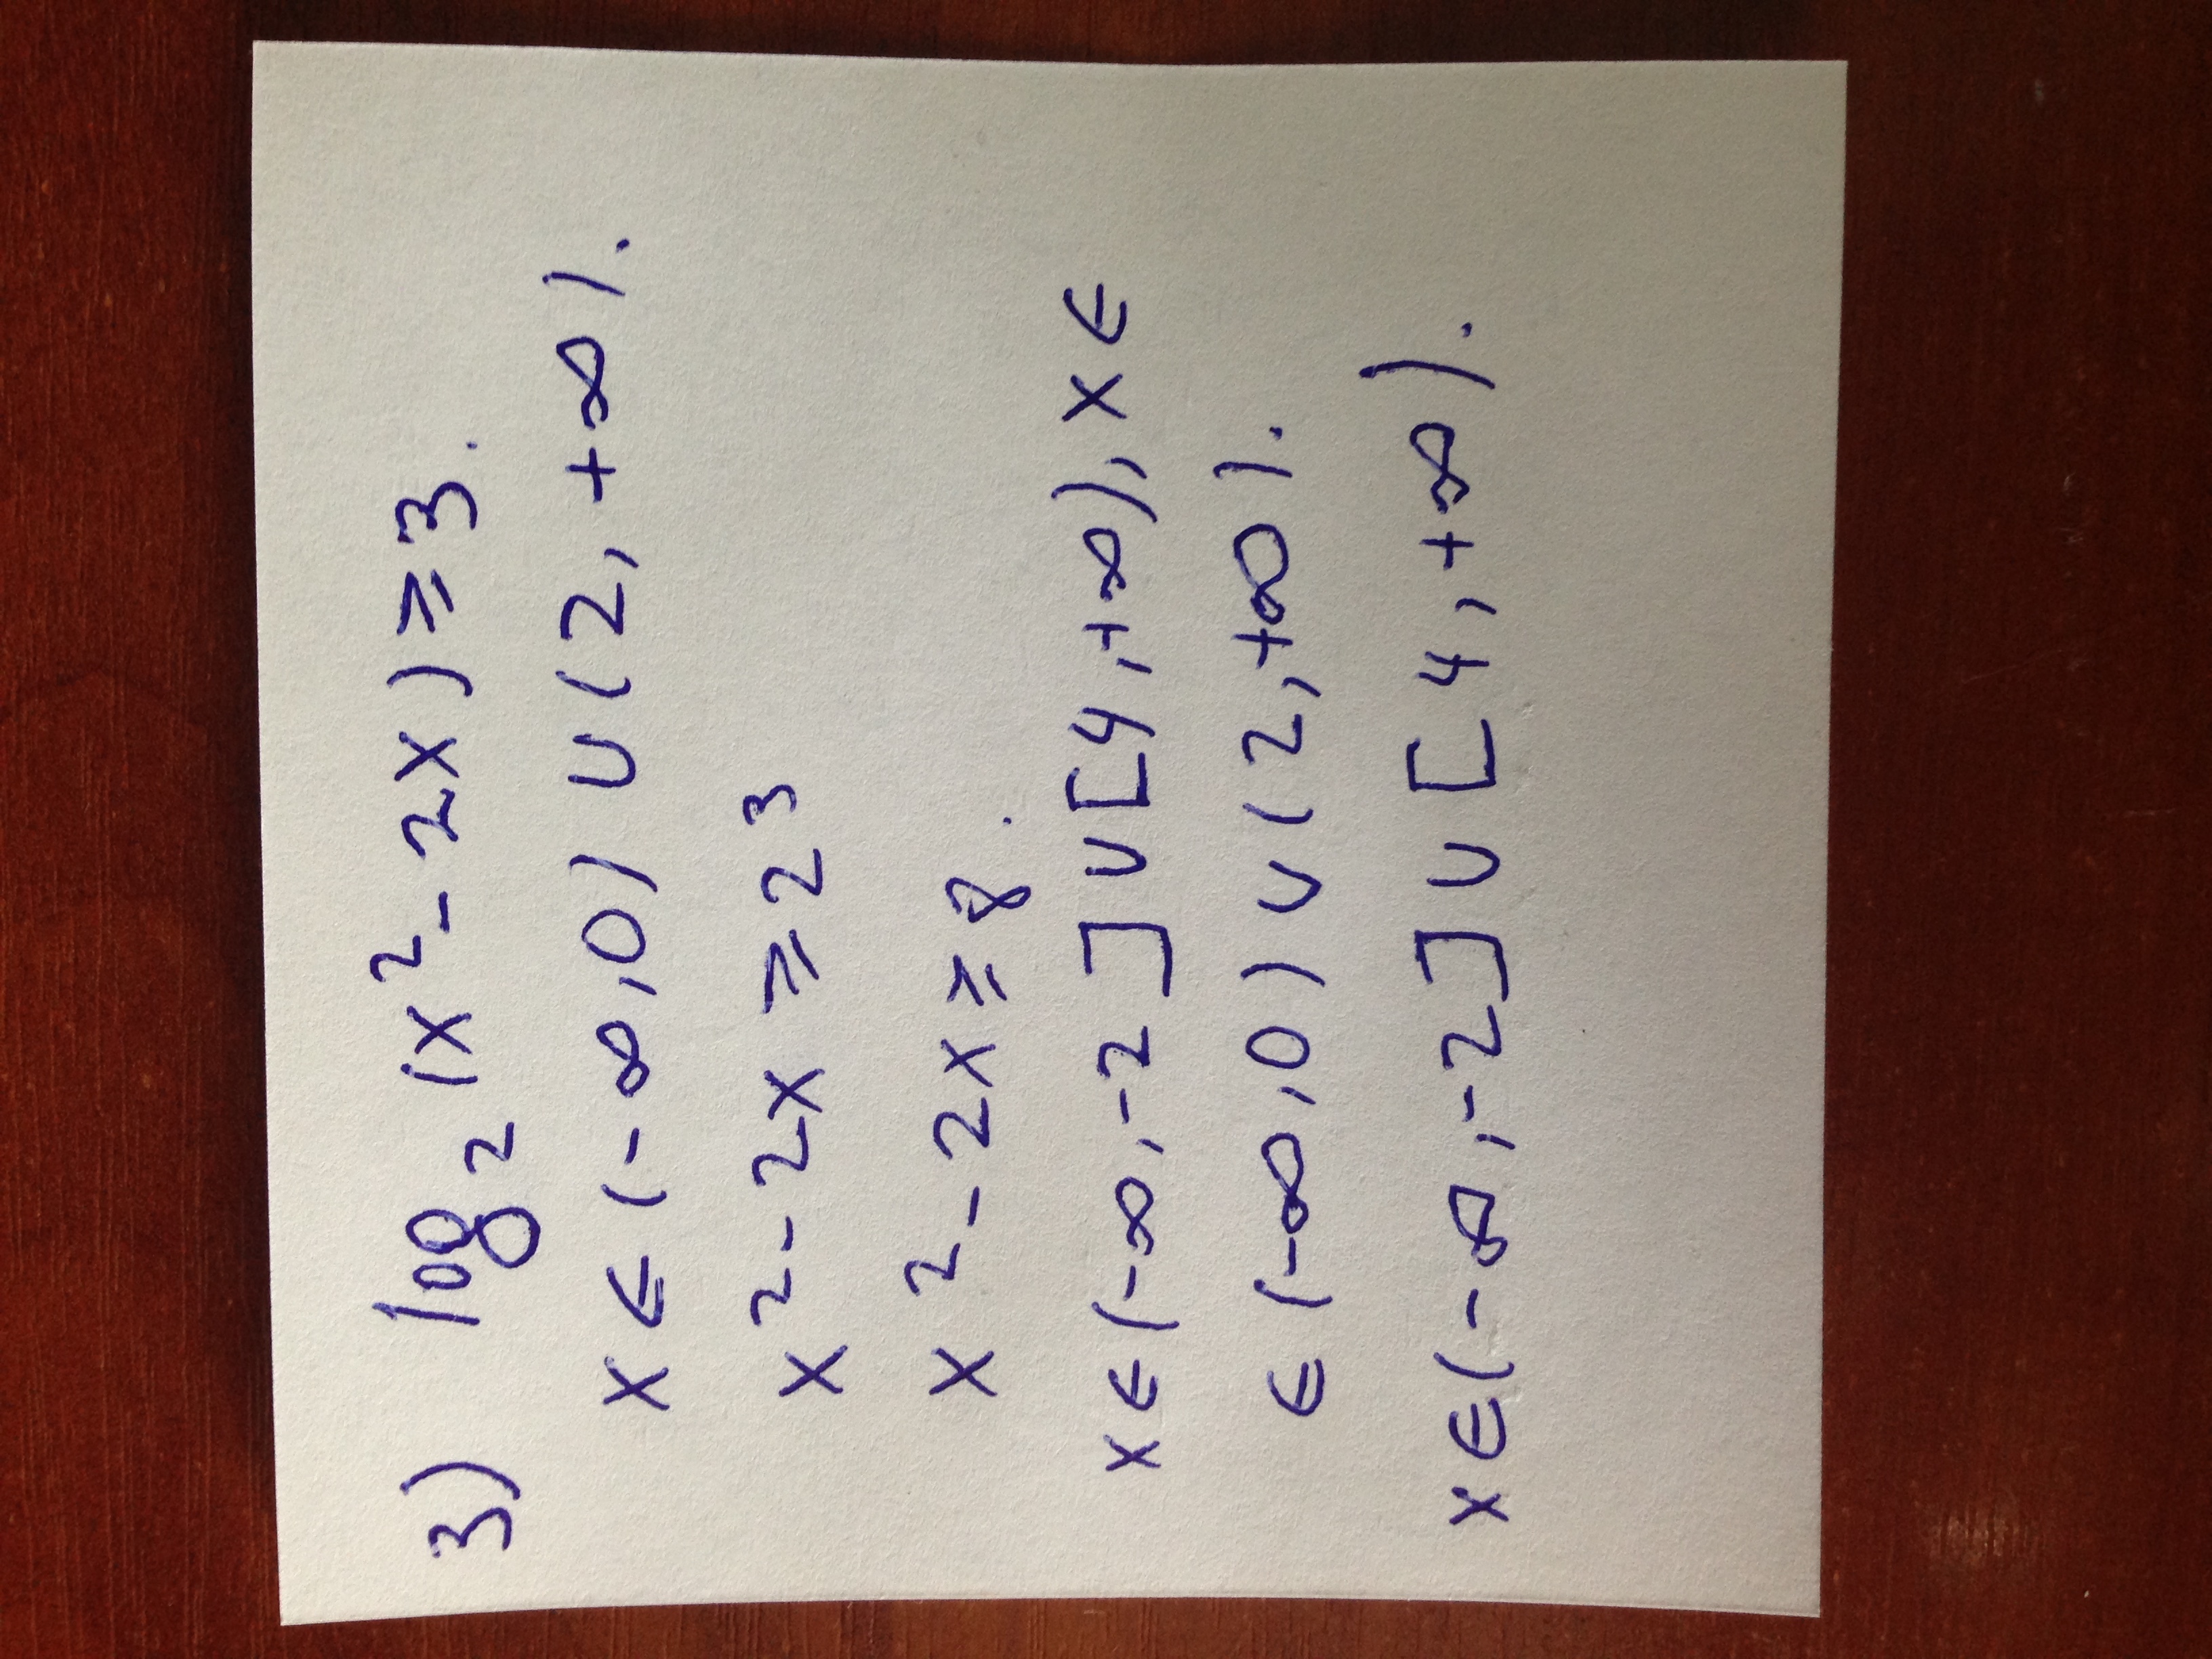 3) log₂(x²-2x)≥3.
x∈(-∞,0)∪(2,+∞).
x²-2x≥2³
x²-2x≥8.
x∈(-∞,-2]∪[4,+∞), x∈
∈(-∞,0)∪(2,+∞).
x∈(-∞,-2]∪[4,+∞).